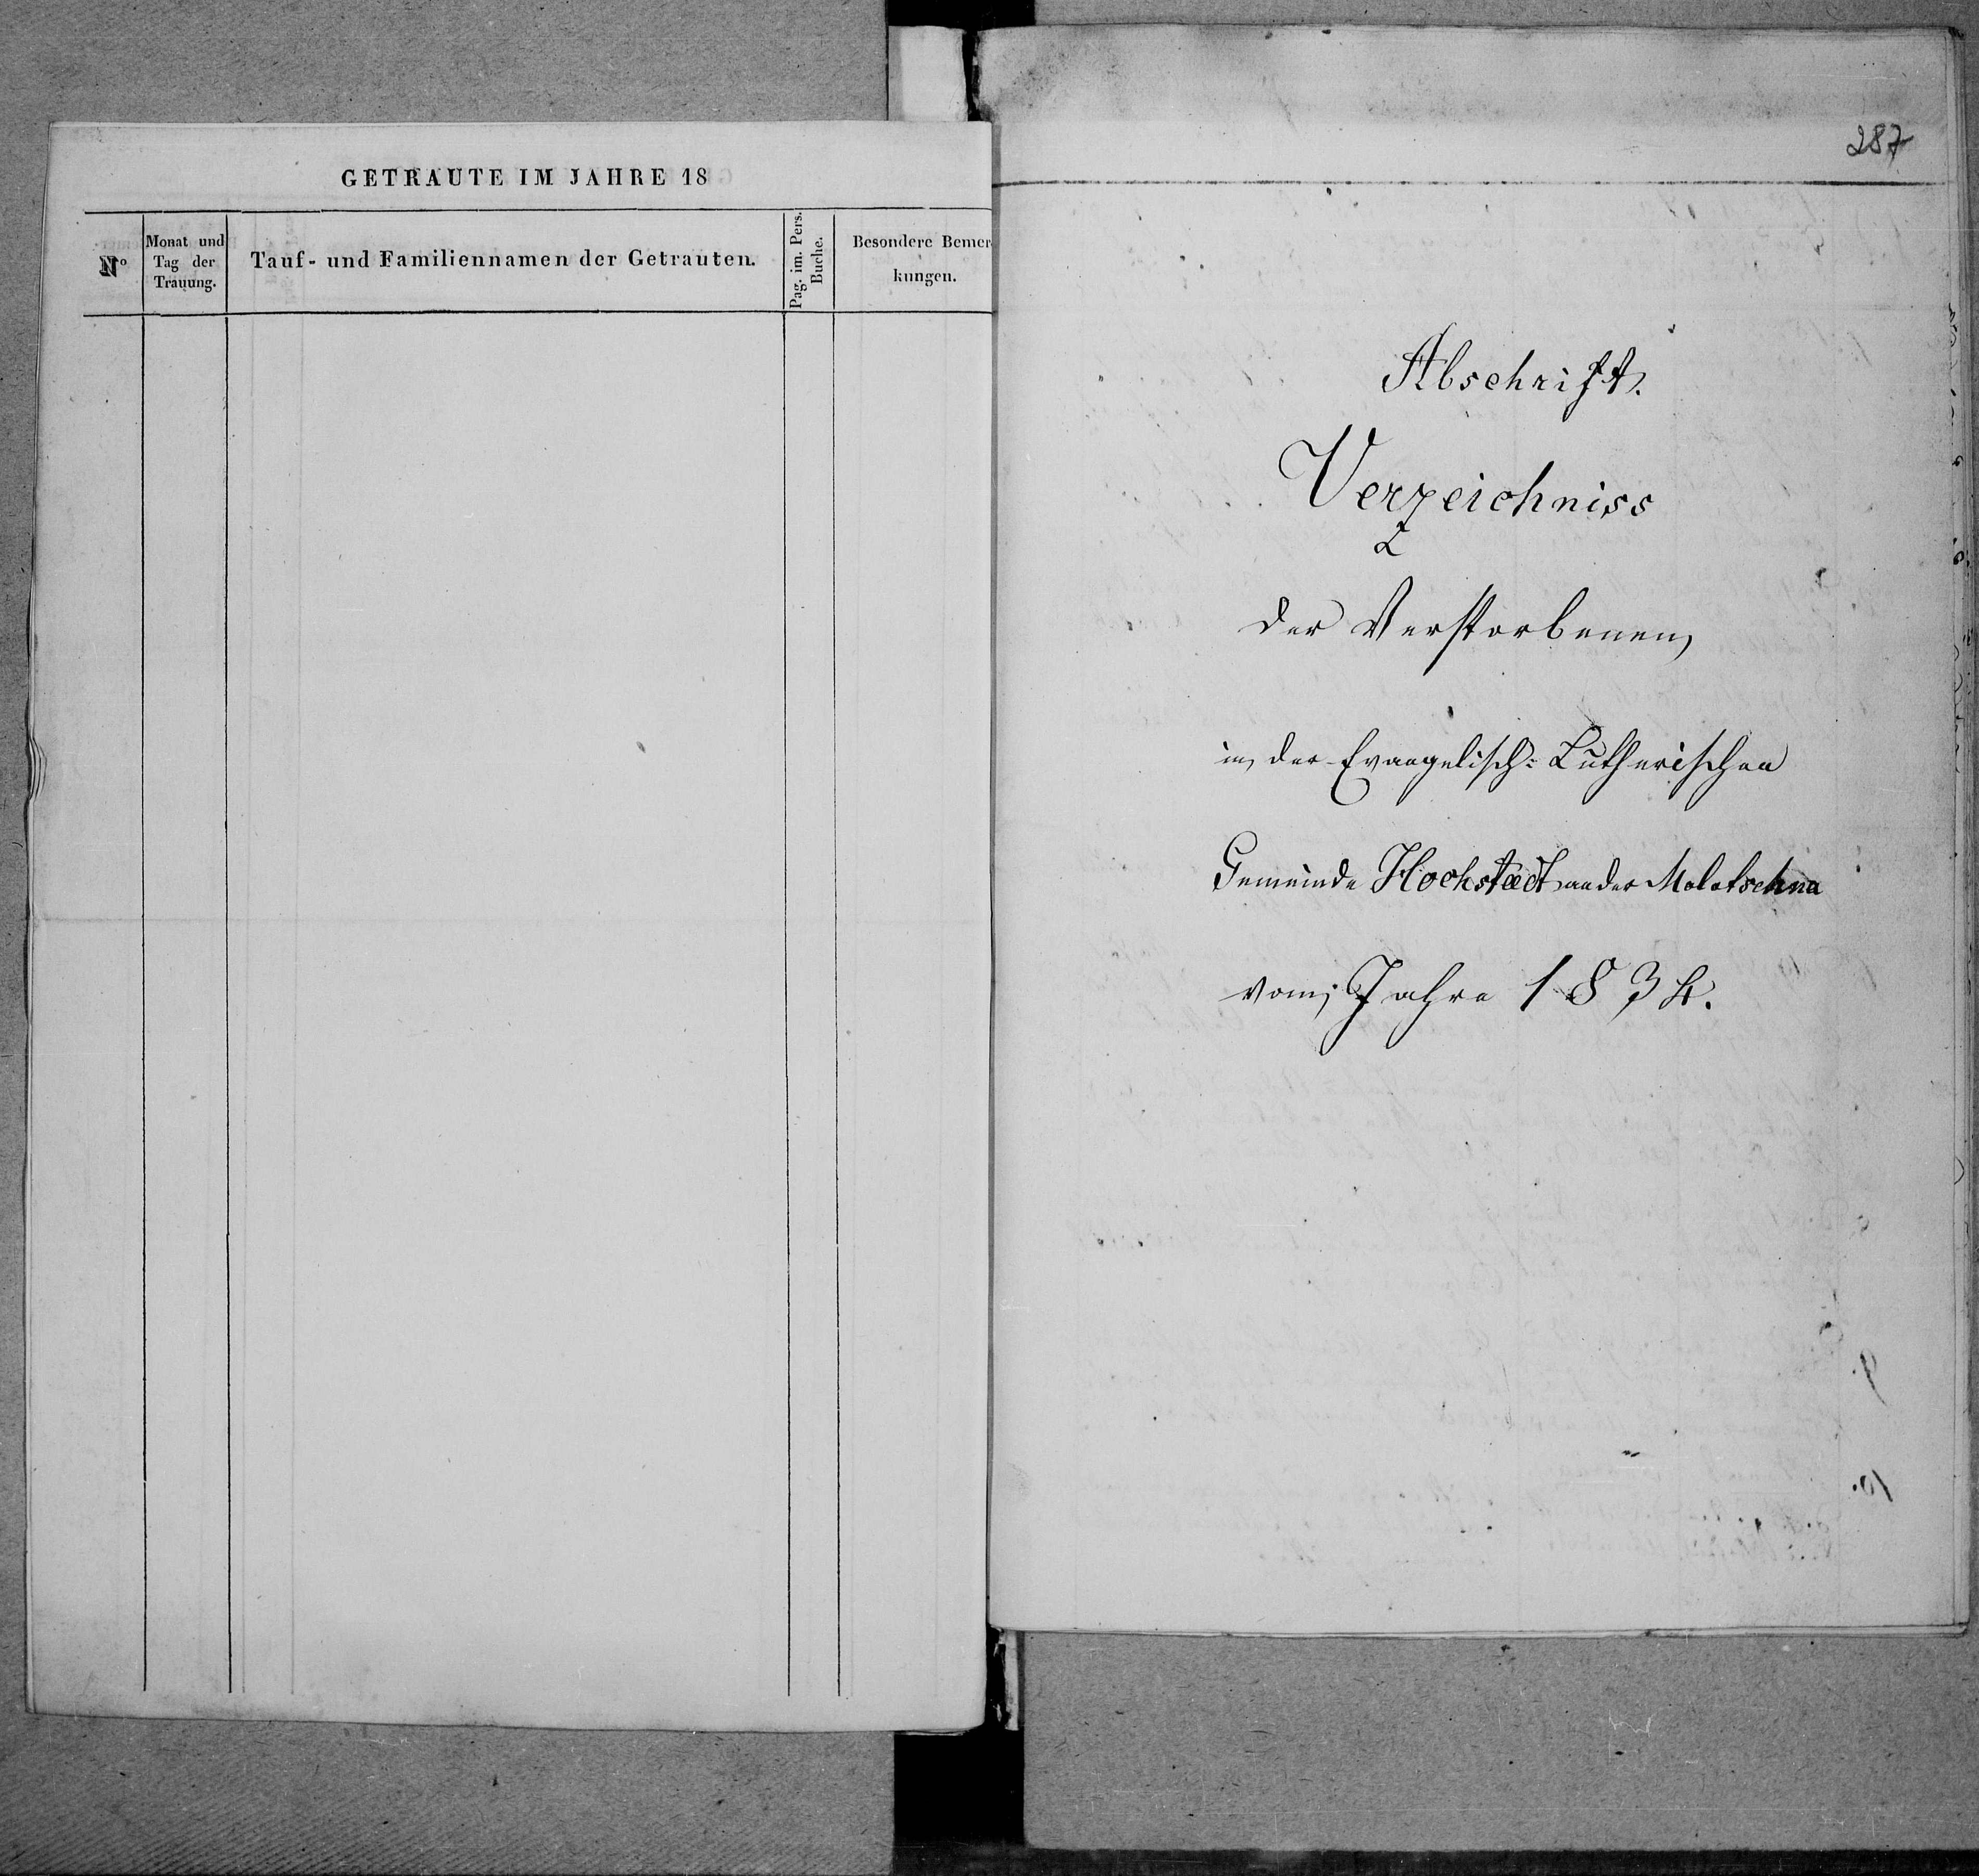 GETRAUTE IM JAHRE 18
N°
Monat und
Tag der
Trauung.
Tauf- und Familiennamen der Getrauten.
Pag. im. Pers.
Buche.
Besondere Bemer-
kungen.
287
Abschrift.
Verzeichniss
der Verstorbenen,
in der Evangelisch: Lutherischen
Gemeinde Hochstædt an der Molotschna
vom Jahre 1834.
9.
10.